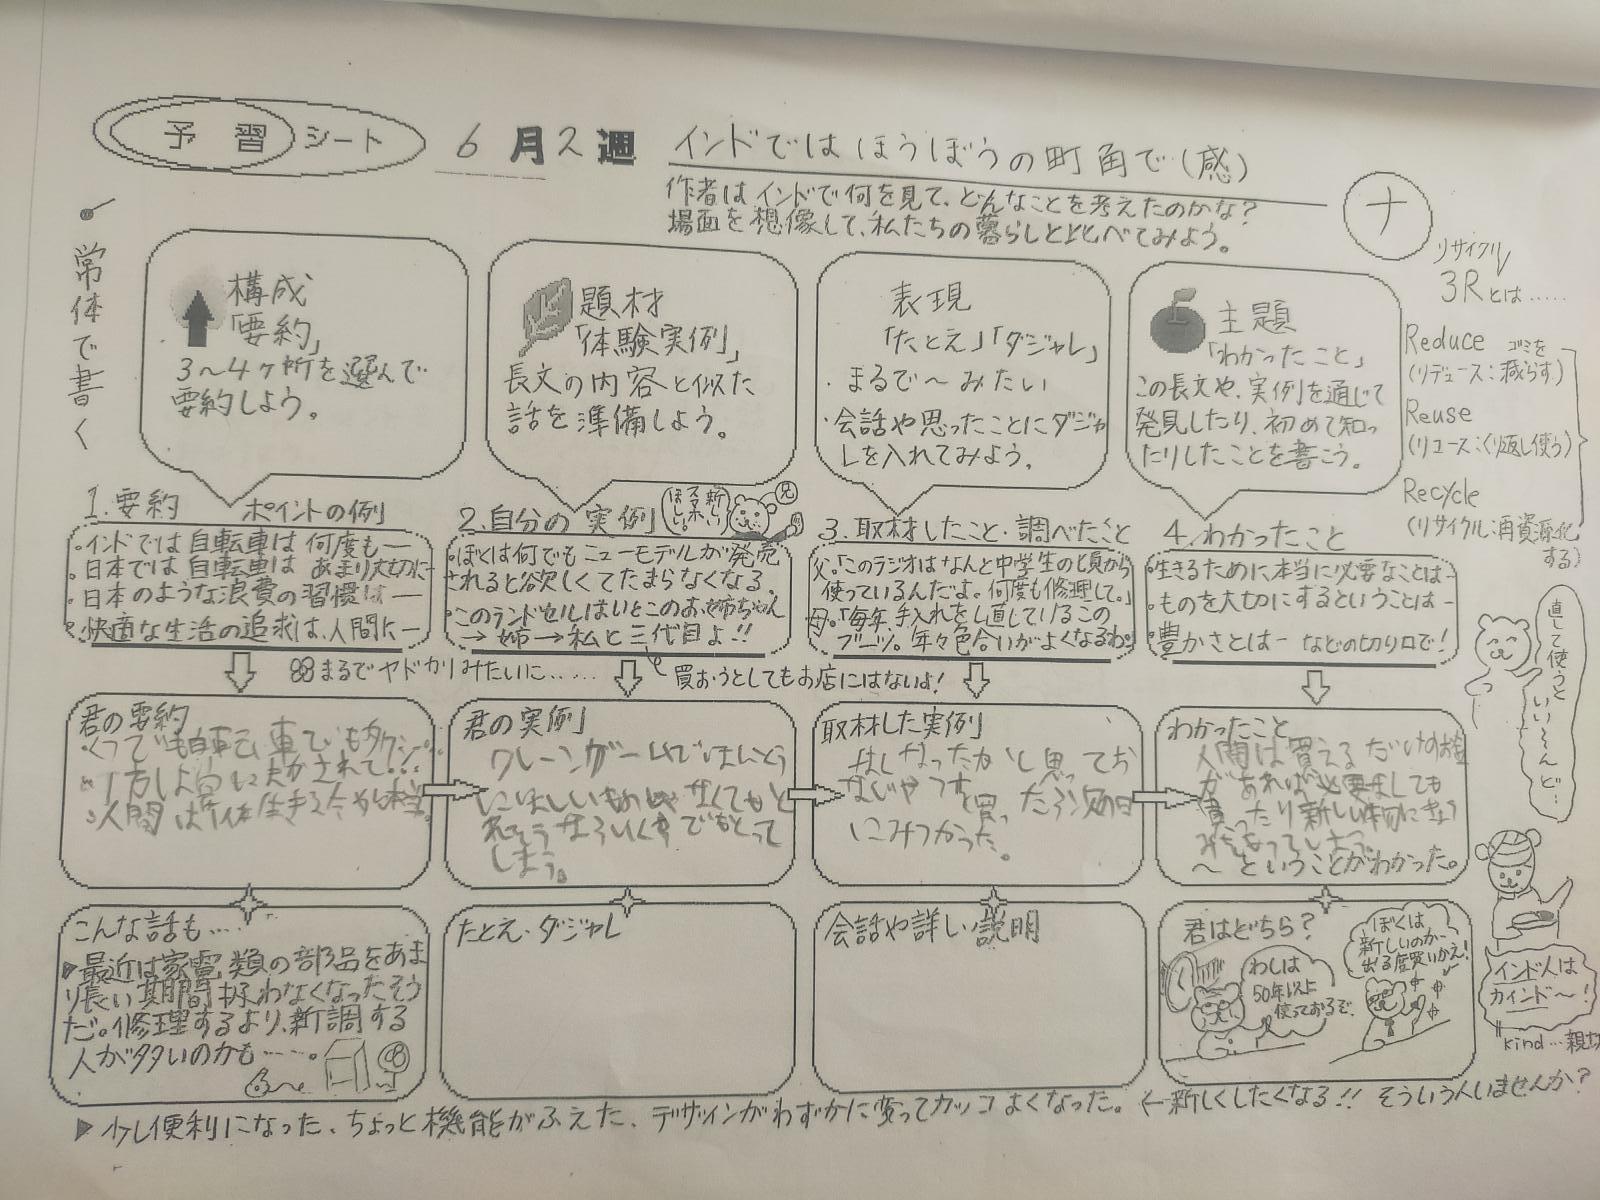 予習シート
6月2週
インドでは ほうぼうの町角で(感)
作者はインドで何を見て、どんなことを考えたのかな?
場面を想像して、私たちの暮らしとくらべてみよう。
ナ
常体で書く
構成
「要約」
3~4ヶ所を選んで
要約しよう。
題材
「体験実例」
長文の内容と似た
話を準備しよう。
表現
「たとえ」「ダジャレ」
・まるで~みたい
・会話や思ったことにダジャ
レを入れてみよう。
主題
「わかったこと」
この長文や、実例を通じて
発見したり、初めて知っ
たりしたことを書こう。
リサイクル
3Rとは……
Reduce ゴミを
(リデュース:減らす)
Reuse
(リユース:くり返し使う)
Recycle
(リサイクル:再資源化
する)
1.要約 ポイントの例
・インドでは自転車は何度も―
・日本では自転車はあまり大切に―
・日本のような浪費の習慣は―
・快適な生活の追求は、人間に―
2.自分の実例
新しい
スマホ
ほしい。
兄
・ぼくは何でもニューモデルが発売
されると欲しくてたまらなくなる。
・このランドセルはいとこのお姉ちゃん
→姉→私と三代目よ!!
3.取材したこと・調べたこと
父「このラジオはなんと中学生の頃から
使っているんだよ。何度も修理して。」
母「毎年、手入れをし直しているこの
ブーツ。年々色合いがよくなるわ。
4.わかったこと
・生きるために本当に必要なことは―
・ものを大切にするということは―
・豊かさとは― などの切り口で!
まるでヤドカリみたいに……
買おうとしてもお店にはないよ!
直して使うと
いい~んど…
君の要約
君の実例
クレーンゲームでほんとう
にほしいものじゃなくてもと
れそうならいくらでもとって
しまう。
取材した実例
ほしかったな、と思ってお
なじやつを買ったら次の日
にみつかった。
わかったこと
人間は買えるだけのお金
があれば必要なくても
買ったり新しい物に
~ということがわかった。
こんな話も…
▶最近は家電類の部品をあま
り長い期間扱わなくなったそう
だ。修理するより、新調する
人が多いのかも……。
たとえ・ダジャレ
会話や詳しい説明
君はどちら?
わしは
50年以上
使っておるぞ。
ぼくは
新しいのが
出る度買いかえ!
インド人は
カインド~!
kind…親切
▶少し便利になった、ちょっと機能がふえた、デザインがわずかに変ってカッコよくなった。←新しくしたくなる!! そういう人いませんか?